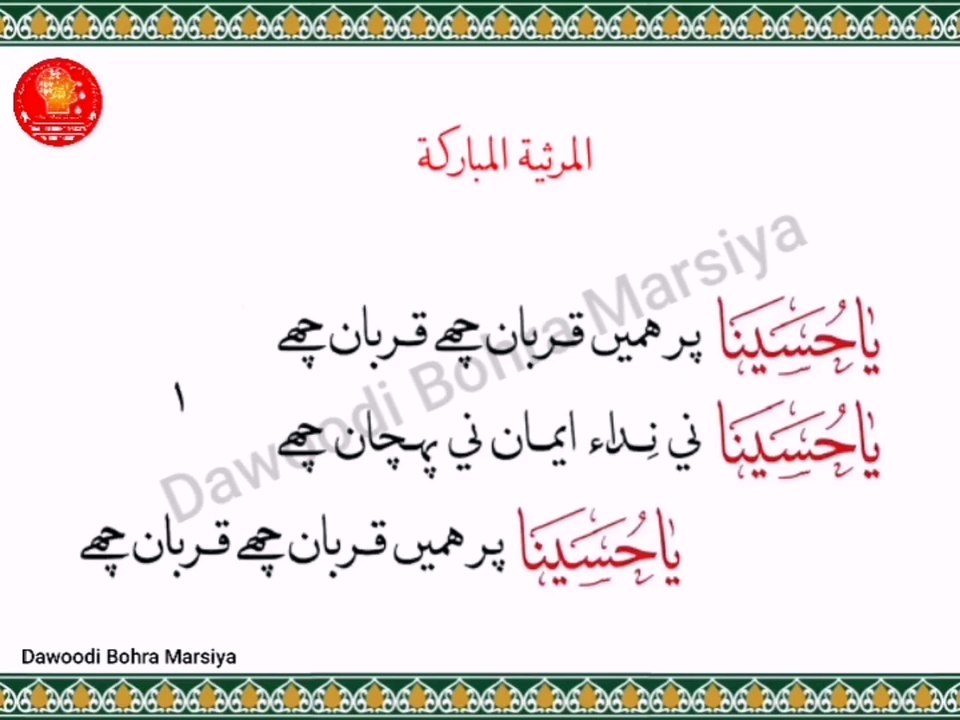 المرثية المباركة
يٰاحُسَيْنَا پر همیں قربان چھے قربان چھے
١
يٰاحُسَيْنَا ني نِداء ايمان ني پہچان چھے
يٰاحُسَيْنَا پر همیں قربان چھے قربان چھے
Dawoodi Bohra Marsiya
Dawoodi Bohra Marsiya